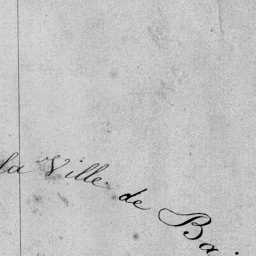 la Ville de Bai